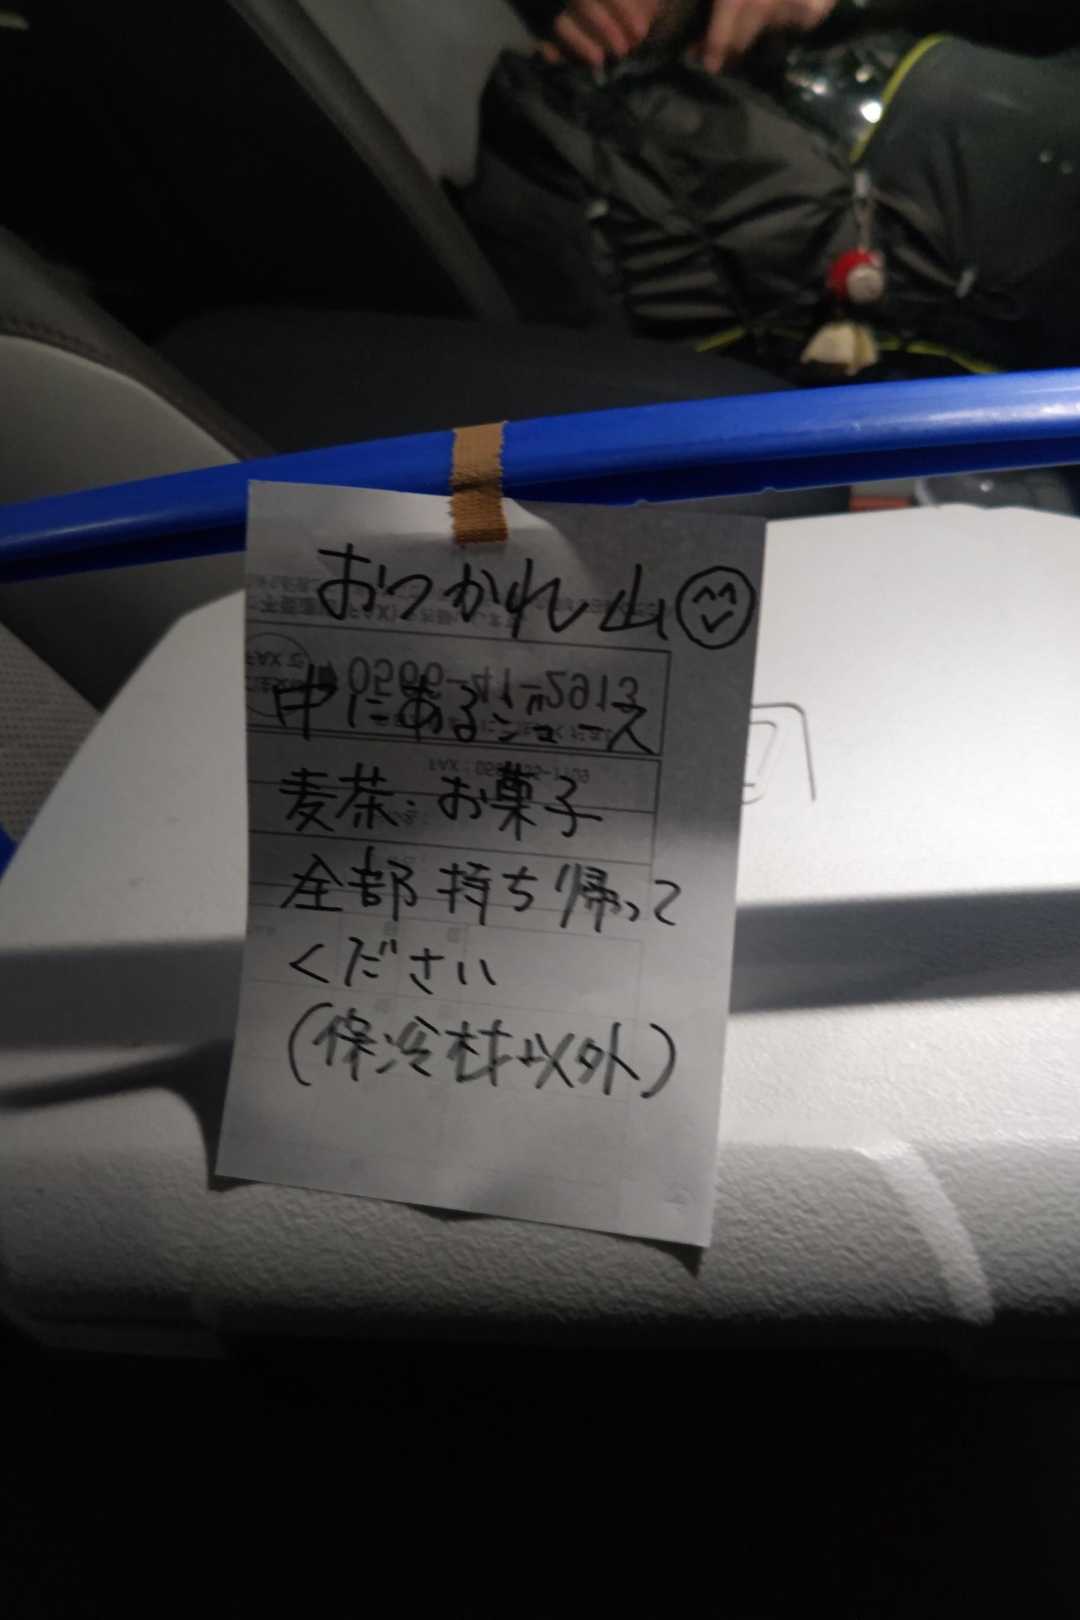 おつかれ山
中にあるジュース
麦茶・お菓子
全部持ち帰って
ください
(保冷材以外)
0566-41-2913